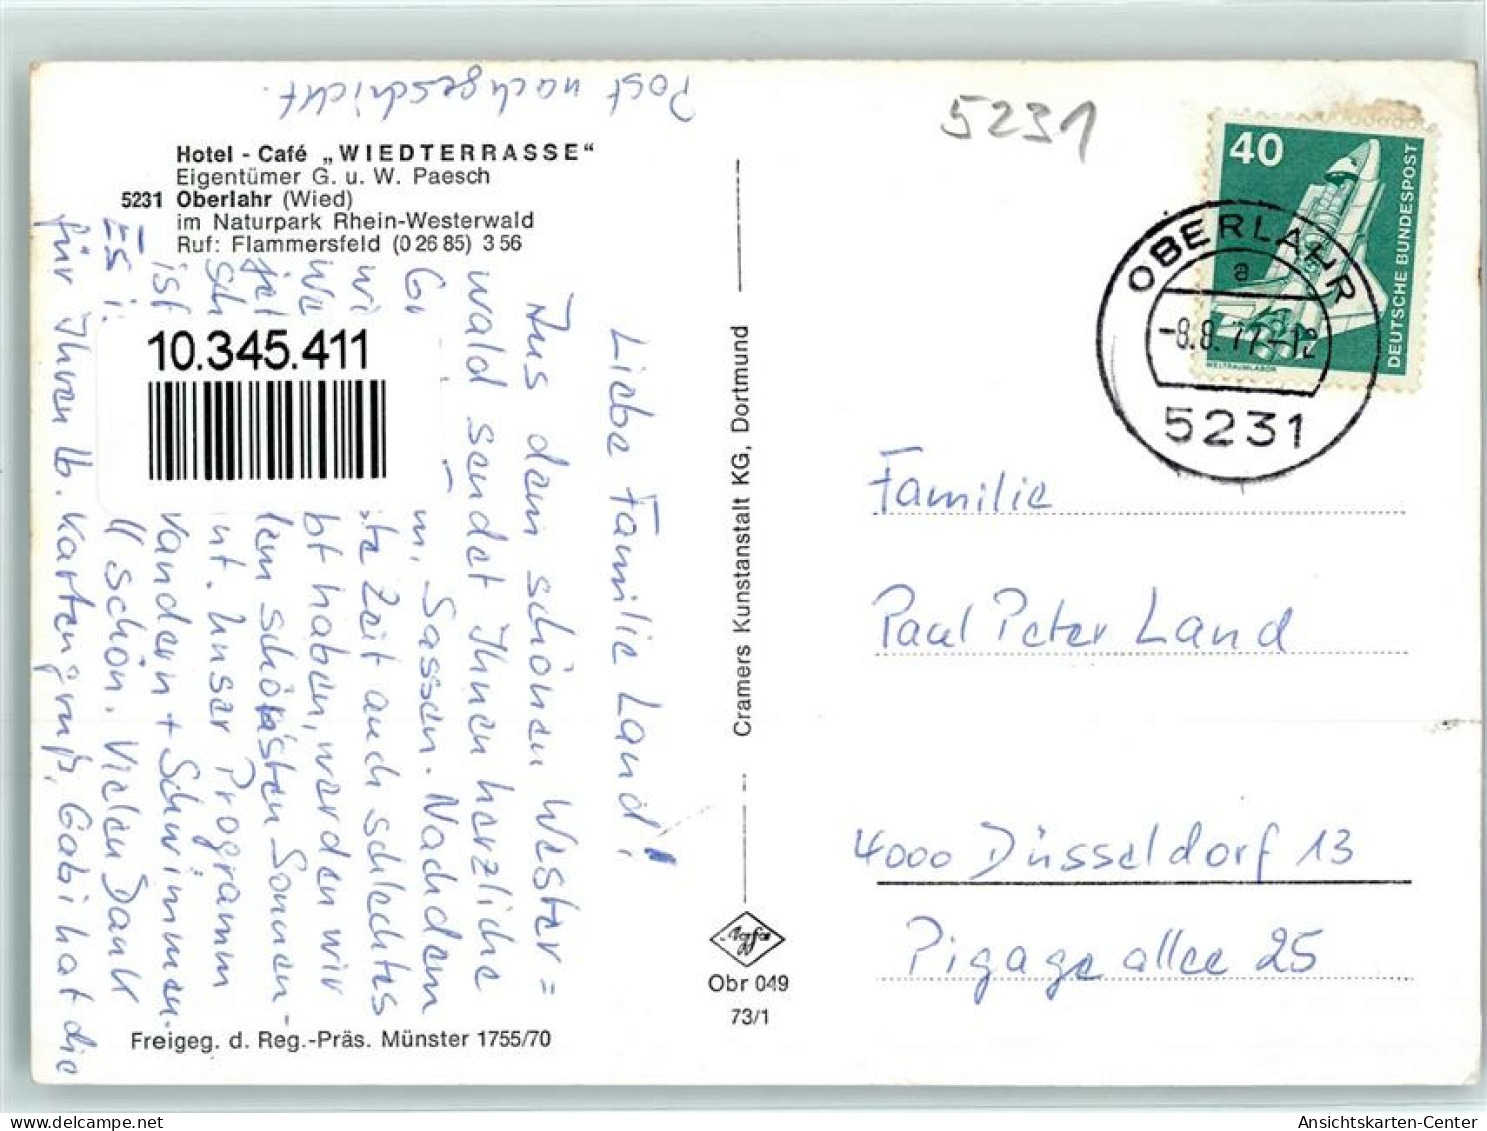 Post nachgeschickt.
Hotel - Café „WIEDTERRASSE“
Eigentümer G. u. W. Paesch
5231 Oberlahr (Wied)
im Naturpark Rhein-Westerwald
Ruf: Flammersfeld (0 26 85) 3 56
10.345.411
Liebe Familie Land!
Aus dem schönen Wester=
wald sendet Ihnen herzliche
m. Sassen. Nachdem
wi Zeit auch schlechtes
bt haben, werden wir
schönsten Sonnen-
nt. Unser Programm
ist Wandern + Schwimmen.
Es schön. Vielen Dank
für Ihren lb. Kartengruß, Gabi hat die
Freigeg. d. Reg.-Präs. Münster 1755/70
Cramers Kunstanstalt KG, Dortmund
Agfa
Obr 049
73/1
5231
40
DEUTSCHE BUNDESPOST
WELTRAUMLABOR
OBERLAHR
a
-8.8.77-12
5231
Familie
Paul Peter Land
4000 Düsseldorf 13
Pigageallee 25
oldthing.net
Ansichtskarten-Center